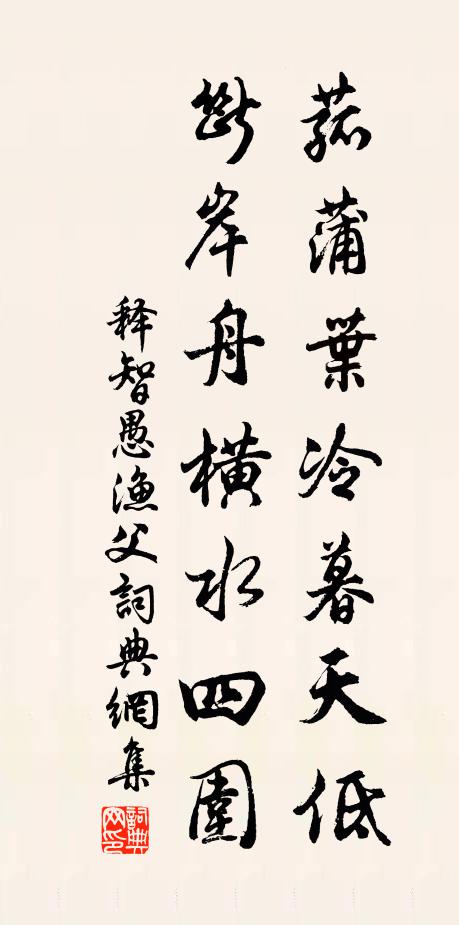 菰蒲葉冷暮天低
斷岸舟橫水四圍
释智愚漁父詞典網集
詞典
网印